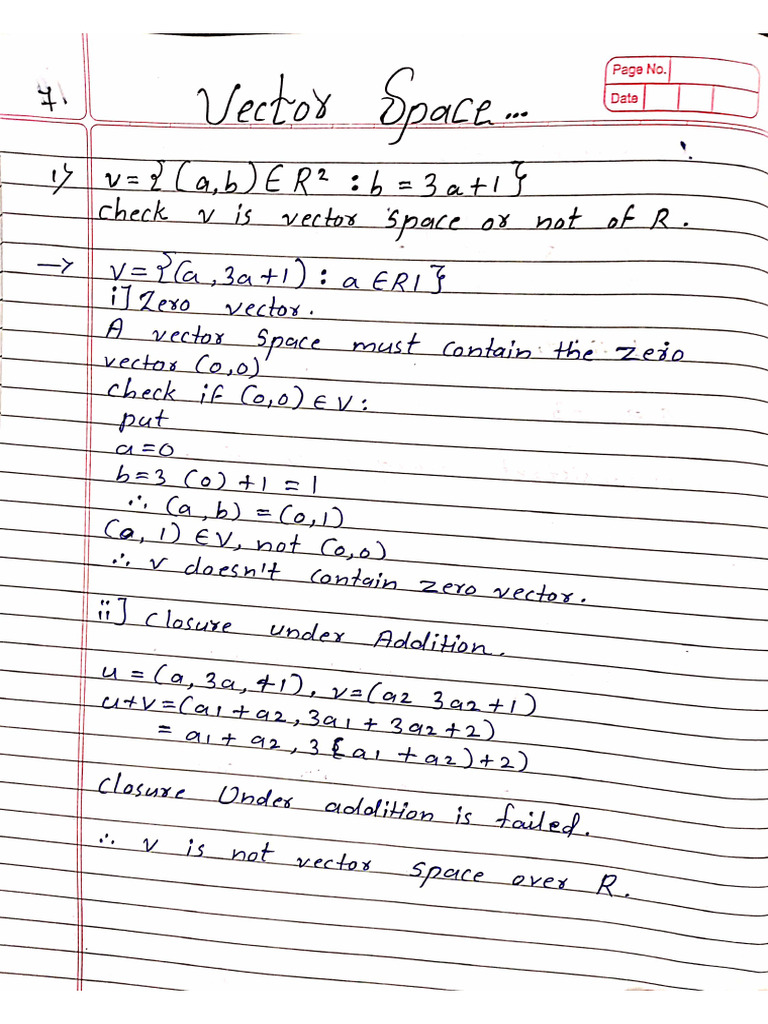 Page No.
Date
7.
Vector Space...
1) v = { (a,b) ∈ R² : b = 3a+1 }
check v is vector space or not of R.
→ V = {(a, 3a+1) : a ∈ R1}
i] Zero vector.
A vector space must contain the zero
vector (0,0)
check if (0,0) ∈ V:
put
a=0
b=3 (0) +1 = 1
∴ (a,b) = (0,1)
(a, 1) ∈ V, not (0,0)
∴ v doesn't contain zero vector.
ii] closure under Addition.
u = (a, 3a, +1), v=(a2 3a2+1)
u+v=(a1+a2, 3a1+3a2+2)
= a1+a2, 3(a1+a2)+2)
closure Under addition is failed.
∴ v is not vector space over R.